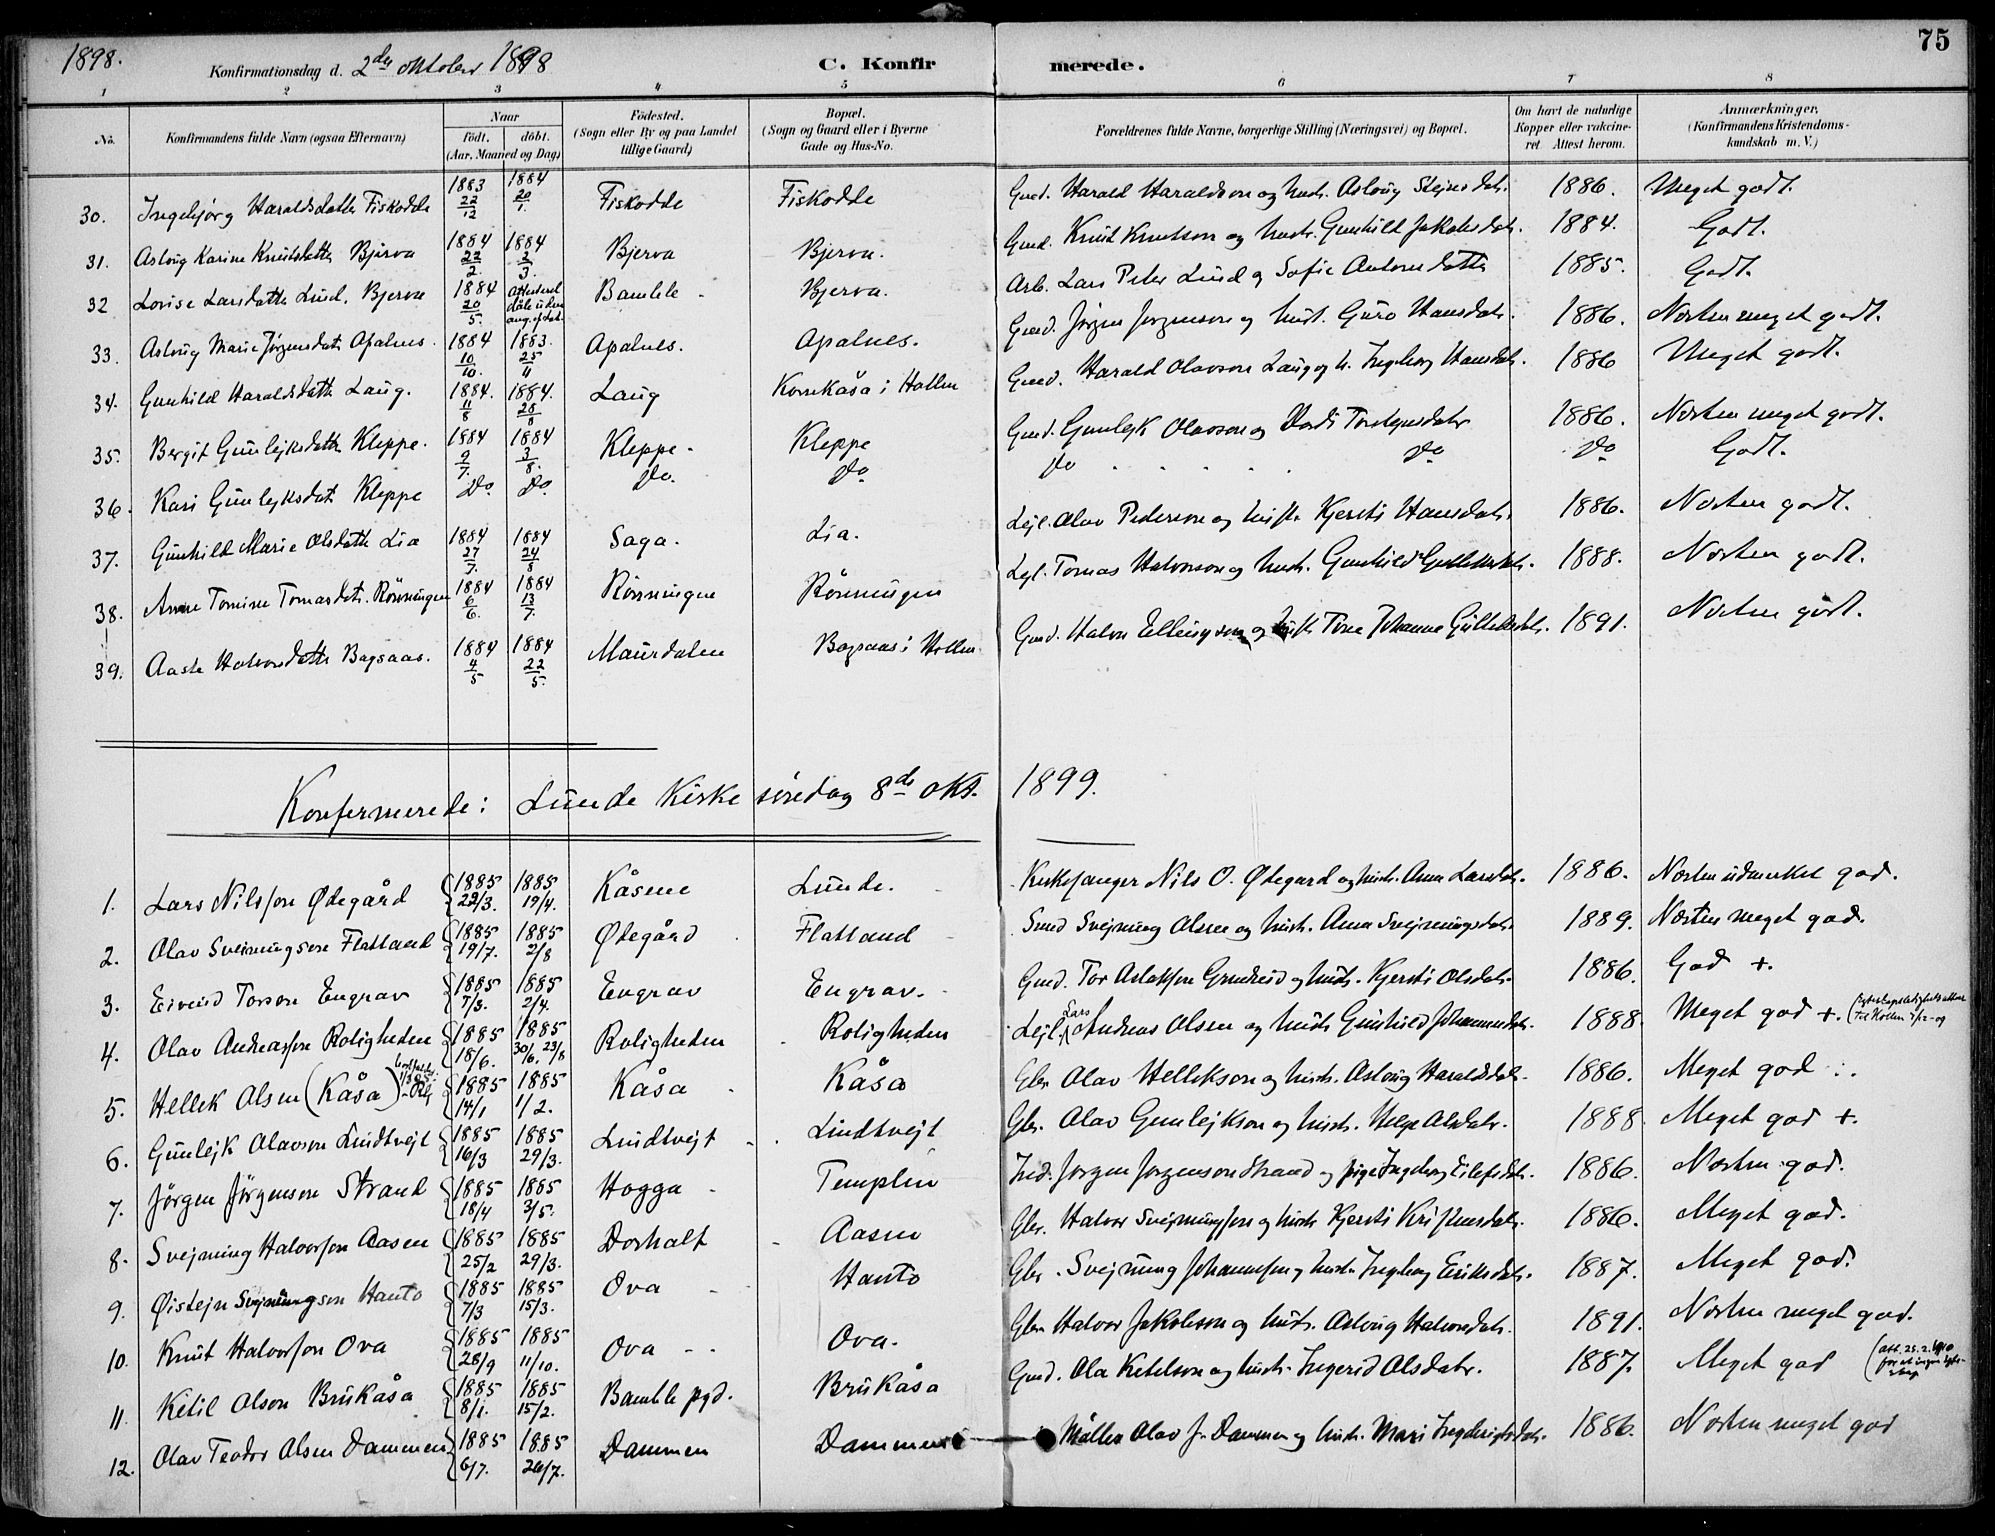 1898. Konfirmationsdag d. 2den oktober 1898 C. Konfirmerede. 75
1 2 3 4 5 6 7 8
No. Konfirmandens fulde Navn (ogsaa Efternavn) Naar födt. döbt. (Aar, Maaned og Dag) Födested. (Sogn eller By og paa Landet tillige Gaard) Bopæl. (Sogn og Gaard eller i Byerne Gade og Hus-No. Forældrenes fulde Navne, borgerlige Stilling (Næringsvei) og Bopæl. Om havt de naturlige Kopper eller vakcineret Attest herom. Anmærkninger, (Konfirmandens Kristendomskundskab m. V.)
30. Ingebjørg Haraldsdatter Fiskodde 1883 22/12 1884 20/1. Fiskodde Fiskodde Gmd. Harald Haraldson og hust. Aslaug 1886. Meget godt.
31. Aslaug Karine Knutsdatter Bjerva 1884 22/2. 1884 2/3. Bjerva Bjerva. Gmd. Knut Knutson og hust. Gunhild Jakobsdatr. 1884. Godt.
32 Lovise Larsdatter Lind. Bjerva 1884 20/5. Bamble - Bjerva. Arb. Lars Peter Lind og Sofie Antonsdatter 1885. Godt.
33. Aslaug Marie Jørgensdatr Apalnes. 1884 10/10. 1883. 25/11 Apalnes. Apalnes. Gmd. Jørgen Jørgenson og hust. Guro Hansdatr. 1886. Næsten meget godt.
34. Gunhild Haraldsdatter Laug. 1884. 11/8 1884. 28/8 Laug Kornkåsa i Hollen Gmd. Harald Olavson Laug og h. Ingeborg Hansdatr. 1886 Meget godt.
35. Bergit Gunlejksdatter Kleppe. 1884 9/7. 1884 3/8. Kleppe. Kleppe Gmd. Gunlejk Olavson og Torstensdatr 1886. Næsten meget godt.
36. Kari Gunlejksdatr Kleppe Do. Do. Do. Do Do Do Do Godt.
37. Gunhild Marie Olsdatter Lia 1884 27/7. 1884 24/8 Saga. Lia. Lejl. Olav Pederson og hust. Kjersti Hansdatr. 1886. Næsten godt.
38. Anne Tomine Tomasdatr. Rönningen 1884 6/6. 1884 13/7. Rönningen Rönningen Lejl. Tomas Halvorson og hust. Gunhild 1888. Næsten godt.
39. Aaste Halvorsdatter Bagsaas. 1884 4/5 1884 22/5. Maurdalen Bagsaas i Hollen Gmd. Halvor Ellingson og hust. Tone Johanne 1891. Næsten godt.
Konfermerede: Lunde Kirke søndag 8de okt. 1899.
1. Lars Nilsson Ødegård 1885 22/3. 1885 19/4. Kåsene Lunde. Kirkesanger Nils O. Ødegard og hust. Anna Larsdatr. 1886. Næsten udmerket god.
2. Olav Svejnungson Flatland 1885 19/7. 1885 2/8 Ødegård Flatland Svejnung Olsen og hust. Anna Svejnungsdatr. 1889. Næsten meget god.
3. Eivind Torson Engrav 1885 7/3. 1885 2/4. Engrav Engrav. Gmd. Tor Aslakson og hust. Kjersti Olsdatr. 1886. God +.
4. Olav Andreasson Roligheden 1885 18/6. 1885 30/6. 23/8 Roligheden Roligheden Lejl. Lars Andreas Olsen og hust. Gunhild Johannesdatr. 1888. Meget god +.
5. Hellek Alsen (Kåsa) 1885 14/1 1885 1/2. Kåsa Kåsa Gbr. Olav Hellekson og hust. Aslaug Haraldsdatr. 1886. Meget god :.
6. Gunlejk Olavson Lindtvejt 1885 16/3 1885 29/3. Lindtvejt Lindtvejt Gbr. Olav Gunlejkson og hust. Helge Olsdatr. 1888. Meget god +.
7. Jörgen Jörgenson Strand 1885 18/4 1885 3/5. Hogga Templin Ind. Jörgen Jörgenson Strand og pige Ingeborg Eilefsdatr. 1886. Næsten god.
8. Svejnung Halvorson Aasen 1885 25/2 1885 29/3. Dorhalt Aasen Gbr. Halvor Svejnungson og hust. Kjersti Kristensdatr. 1886. Meget god.
9. Øistejn Svejnungson Hanto 1885 7/3 1885 15/3. Ova Hanto Gbr. Svejnung Johannesen og hust. Ingeborg Eriksdatr. 1887. Meget god.
10. Knut Halvorson Ova 1885 28/9 1885 11/10. Ova Ova. Gbr. Halvor Jakobson og hust. Aslaug Halvorsdatr. 1891. Næsten meget god.
11 Ketil Olson Brukåsa 1885 8/1. 1885 15/2. Bamble pgd. Brukåsa Gmd. Ola Ketelson og hust. Ingerid Olsdatr. 1887. Meget god (att. 25.2.1910
12. Olav Teodor Olsen Dammen 1885 6/7. 1885 26/7. Dammen Dammen Møller Olav J. Dammen og hust. Mari 1886. Næsten meget god